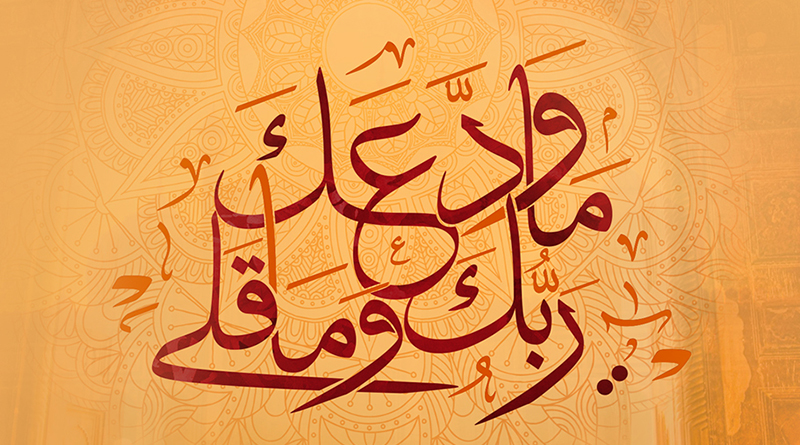 مَا وَدَّعَكَ
رَبُّكَ وَمَا قَلَى